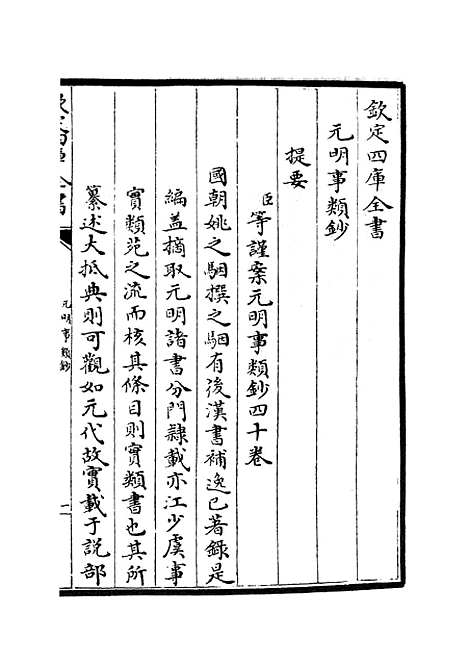 欽定四庫全書
元明事類鈔
提要
臣等謹案元明事類鈔四十卷
國朝姚之駰撰之駰有後漢書補逸已著錄是
編葢摘取元明諸書分門隷載亦江少虞事
實類苑之流而核其條目則實類書也其所
纂述大抵典則可觀如元代故實載于說部
元明事類鈔